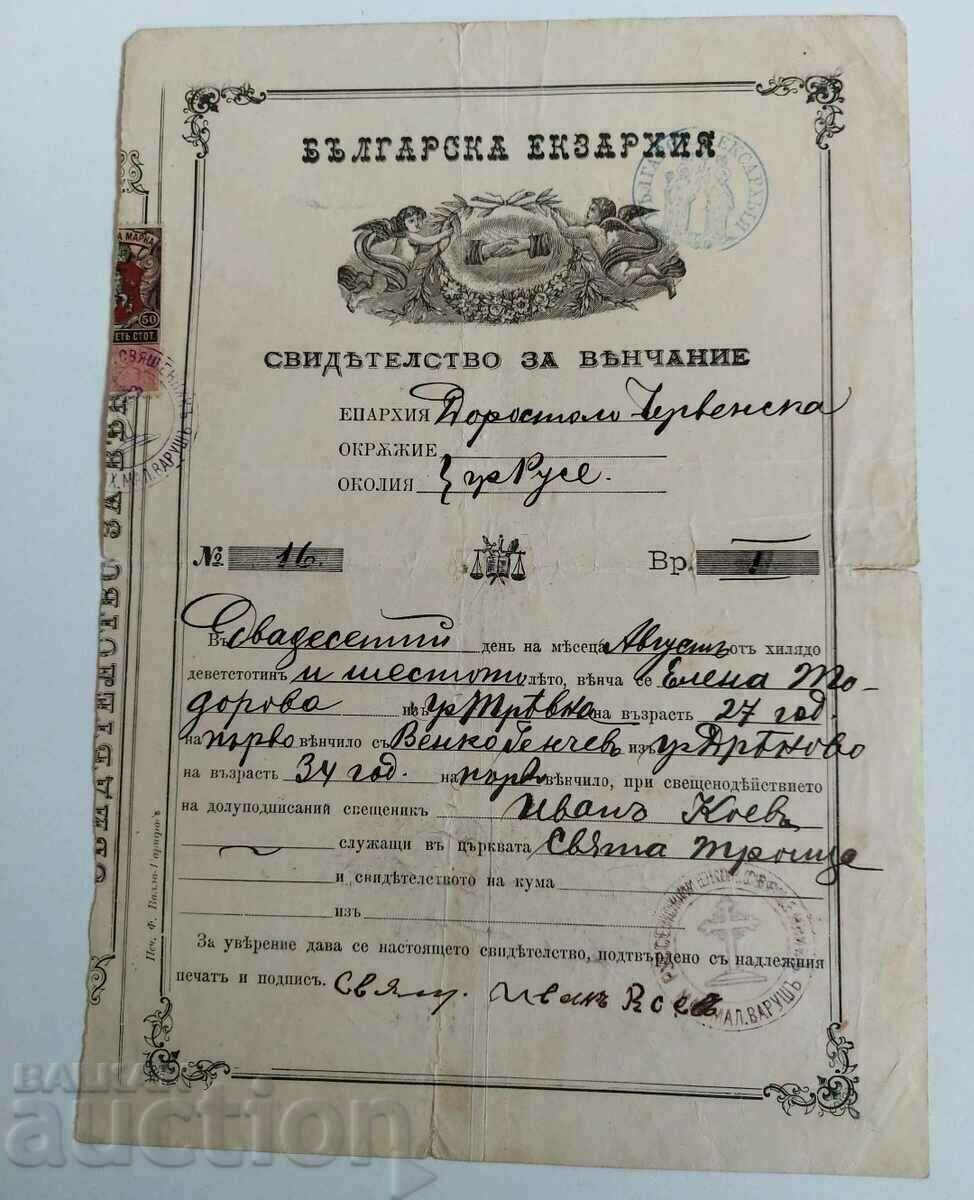 БЪЛГАРСКА ЕКЗАРХИЯ
СВИДѢТЕЛСТВО ЗА ВѢНЧАНИЕ
ЕПАРХИЯ Доростоло Червенска
ОКРѪЖИЕ
ОКОЛИЯ } гр Русе.
№ 16. Вр. 1
Въ Двадесетий день на мѣсеца Августъ отъ хилядо
деветстотинъ и шестото лѣто, вѣнча се Елена То-
дорова изъ гр Трѣвна на възрасть 27 год.
на първо вѣнчило съ Венко Генчевъ изъ гр Дрѣново
на възрасть 34 год. на първо вѣнчило, при свещенодѣйствието
на долуподписаний свещеникъ Иванъ Коевъ
служащи въ църквата Свята Троица
и свидѣтелството на кума
изъ
За увѣрение дава се настоящето свидѣтелство, подтвърдено съ надлежния
печатъ и подпись. Свящ. Иванъ Коевъ
МАЛ. ВАРУШЪ
А МАРКА
50
ЕТЬ СТОТ.
СВЯЩЕН
МАЛ. ВАРУШЪ
СВИДѢТЕЛСТВО ЗА ВѢН
Печ. Ф.
БАЛКАН
auction